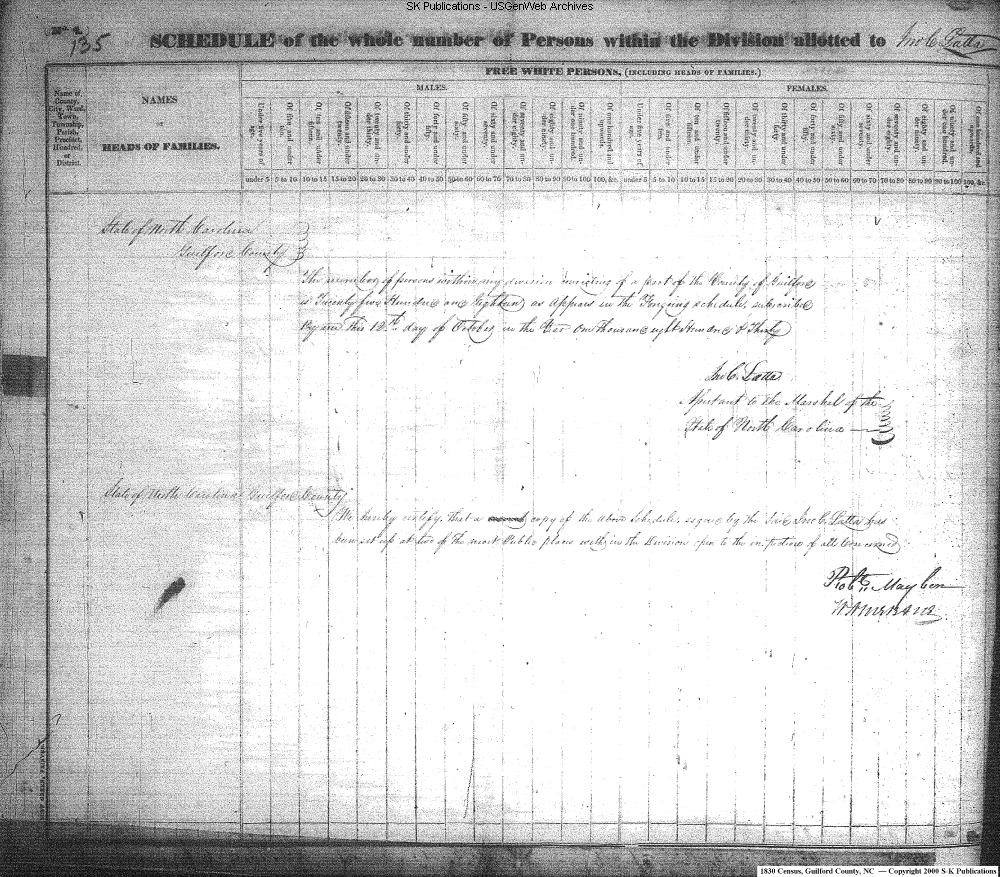 SK Publications - USGenWeb Archives
135
SCHEDULE of the whole number of Persons within the Division allotted to Jno C. Latta
FREE WHITE PERSONS, (INCLUDING HEADS OF FAMILIES.)
MALES. FEMALES.
Name of County, City, Ward, Town, Township, Parish, Precinct, Hundred, or District.
NAMES
OF
HEADS OF FAMILIES.
Under five years of age.
Of five and under ten.
Of ten and under fifteen.
Of fifteen and under twenty.
Of twenty and under thirty.
Of thirty and under forty.
Of forty and under fifty.
Of fifty and under sixty.
Of sixty and under seventy.
Of seventy and under eighty.
Of eighty and under ninety.
Of ninety and under one hundred.
Of one hundred and upwards.
Under five years of age.
Of five and under ten.
Of ten and under fifteen.
Of fifteen and under twenty.
Of twenty and under thirty.
Of thirty and under forty.
Of forty and under fifty.
Of fifty and under sixty.
Of sixty and under seventy.
Of seventy and under eighty.
Of eighty and under ninety.
Of ninety and under one hundred.
Of one hundred and upwards.
under 5 5 to 10 10 to 15 15 to 20 20 to 30 30 to 40 40 to 50 50 to 60 60 to 70 70 to 80 80 to 90 90 to 100 100, &c. under 5 5 to 10 10 to 15 15 to 20 20 to 30 30 to 40 40 to 50 50 to 60 60 to 70 70 to 80 80 to 90 90 to 100 100, &c.
State of North Carolina
Guilford County
The number of persons within my division consisting of a part of the County of Guilford
is Twenty five Hundred and Eighteen as appears in the Forgoing schedule, subscribed
By me This 12th day of October in the Year one thousand eight Hundred & Thirty
Jno C. Latta
Assistant to the Marshal of the
State of North Carolina
State of North Carolina Guilford County
We hereby certify that a copy of the above Schedule, signed by the Said Jno C. Latta has
been set up at two of the most Public places within the Division open to the inspection of all Concerned
Robt
1830 Census, Guilford County, NC — Copyright 2000 S-K Publications